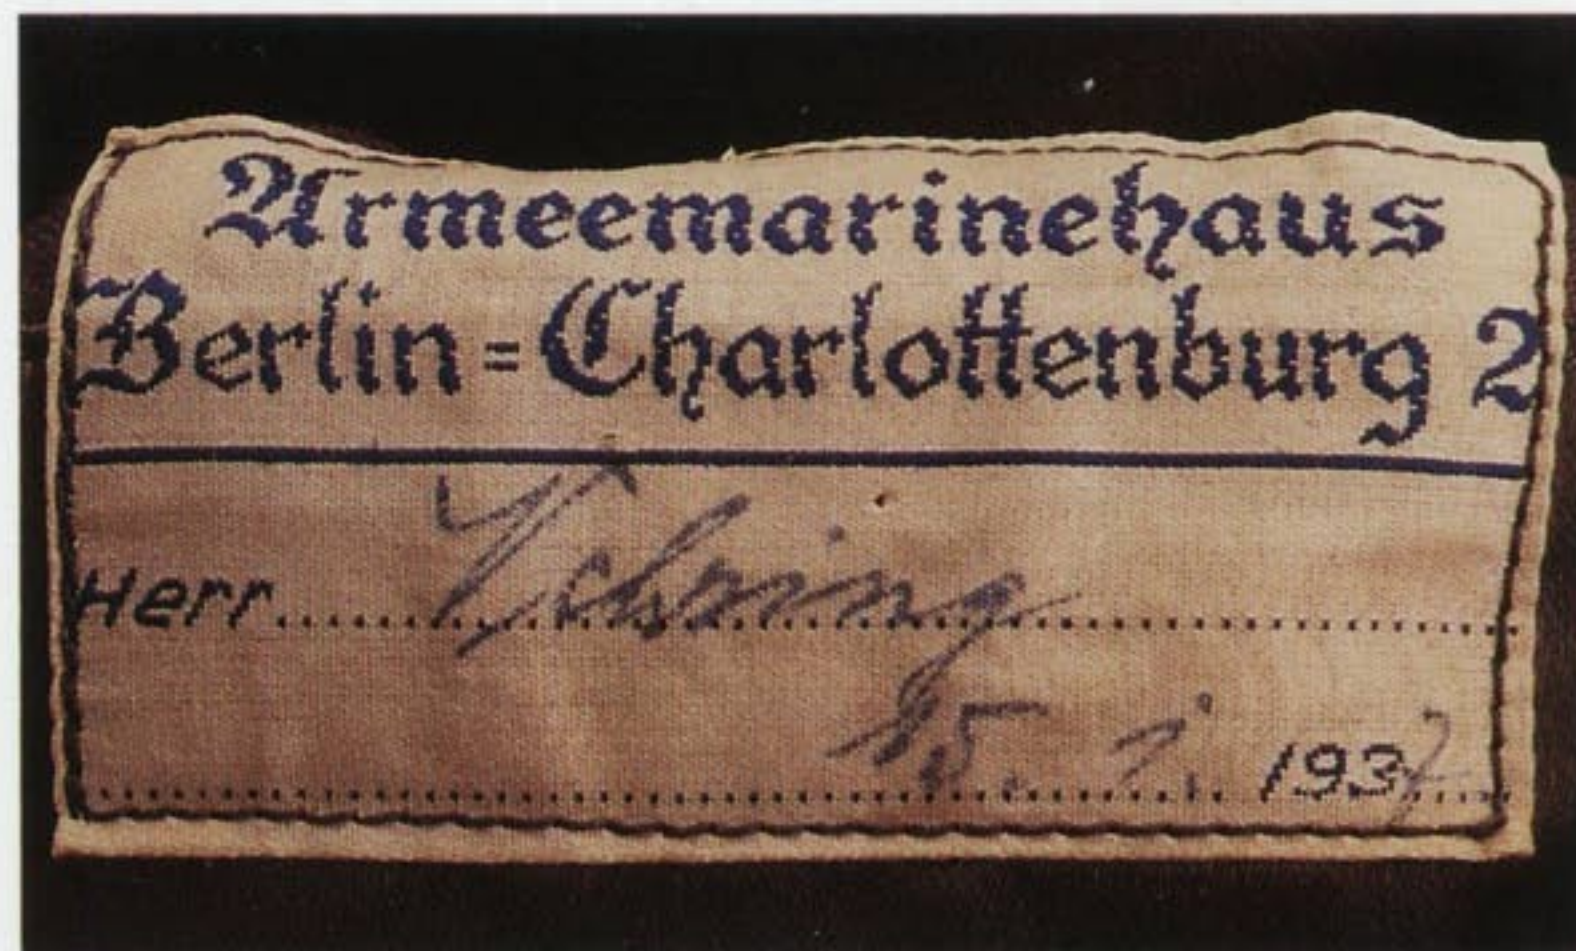 Armeemarinehaus
Berlin=Charlottenburg 2
Herr
15. 1. 1937